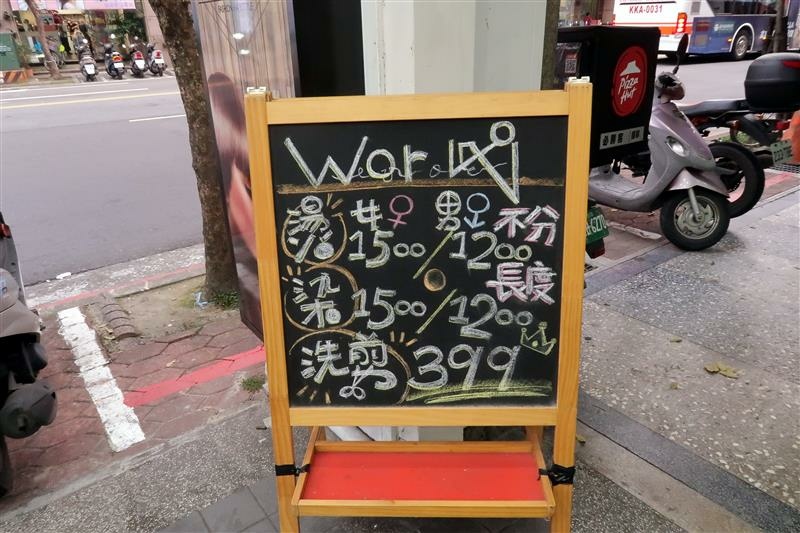 War
燙 女♀ 男♂ 不分
1500/1200 長度
染 1500/1200
洗剪 399
KKA-0031
Pizza Hut
必勝客